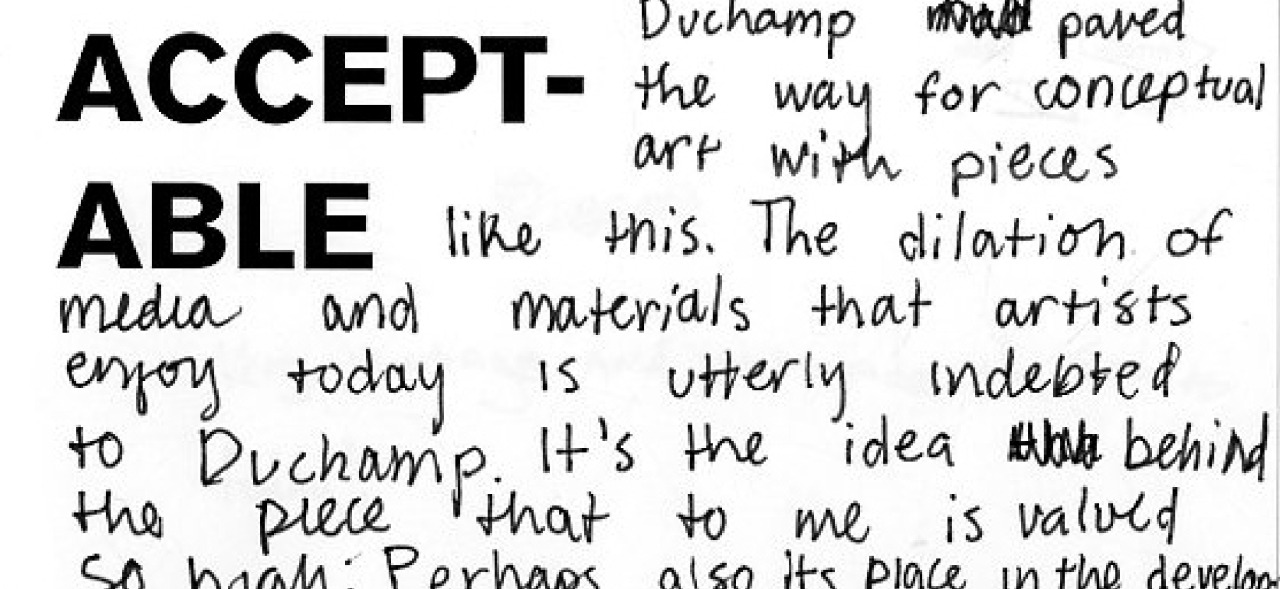 ACCEPT-
ABLE
Duchamp paved
the way for conceptual
art with pieces
like this. The dilation of
media and materials that artists
enjoy today is utterly indebted
to Duchamp. It's the idea behind
the piece that to me is valued
so high. Perhaps also its place in the develop